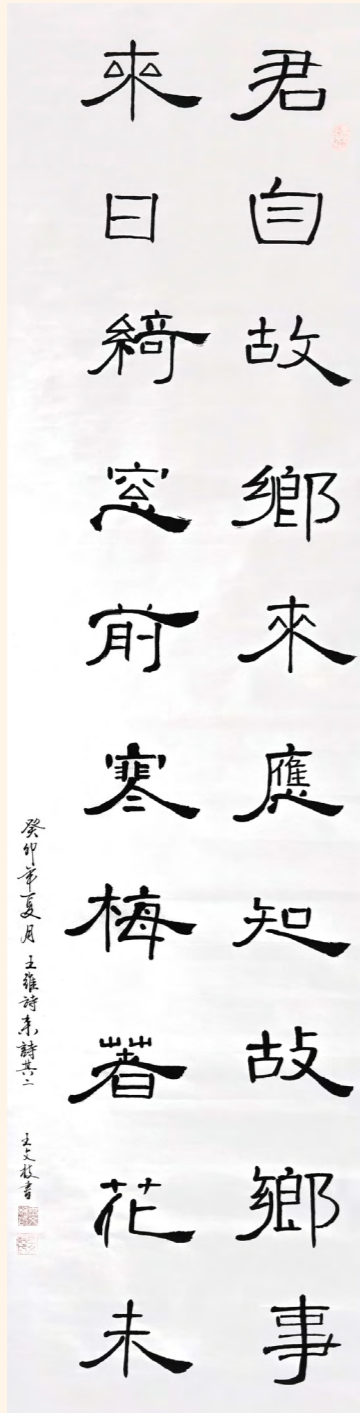 君自故鄉來應知故鄉事
來日綺窓前寒梅著花未
癸卯年夏月 王維詩 詩其二 王文 書